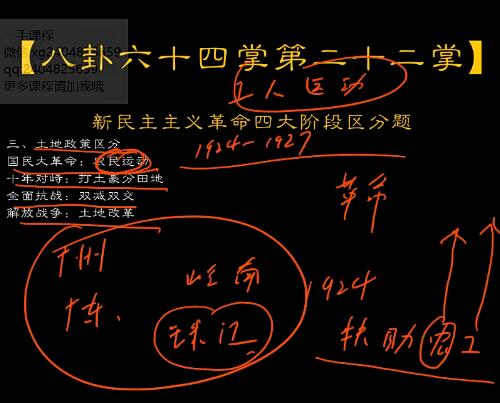 一手课程
微信xg2404825659
qq:2404825659
更多课程请加我哦
【八卦六十四掌第二十二掌】
工人运动
新民主主义革命四大阶段区分题
三、土地政策区分
1924-1927
国民大革命：农民运动
十年对峙：打土豪分田地
全面抗战：双减双交
解放战争：土地改革
革命
广州
岭南
1924
广东、
珠江
扶助农工